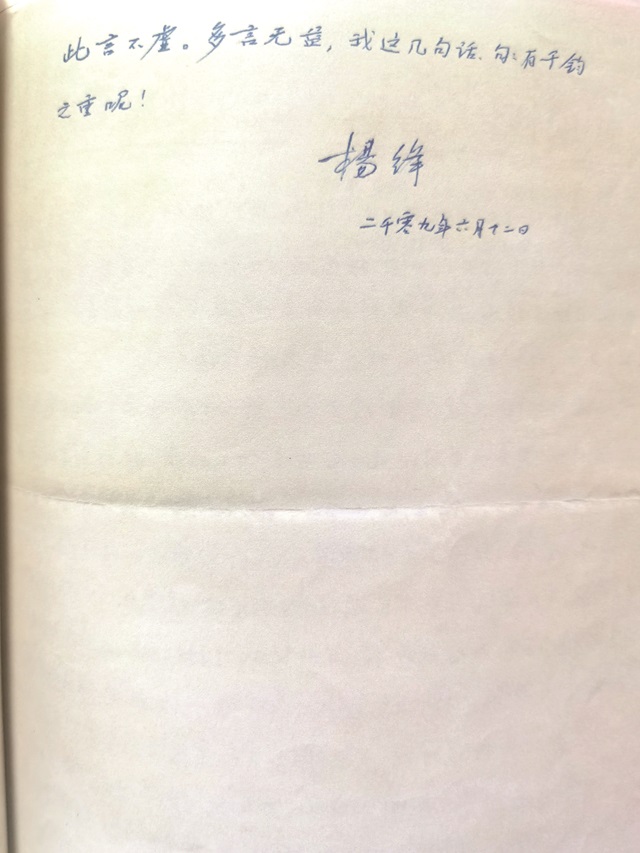 此言不虚。多言无益，我这几句话、句:有千钧
之重呢！
杨绛
二千零九年六月十二日